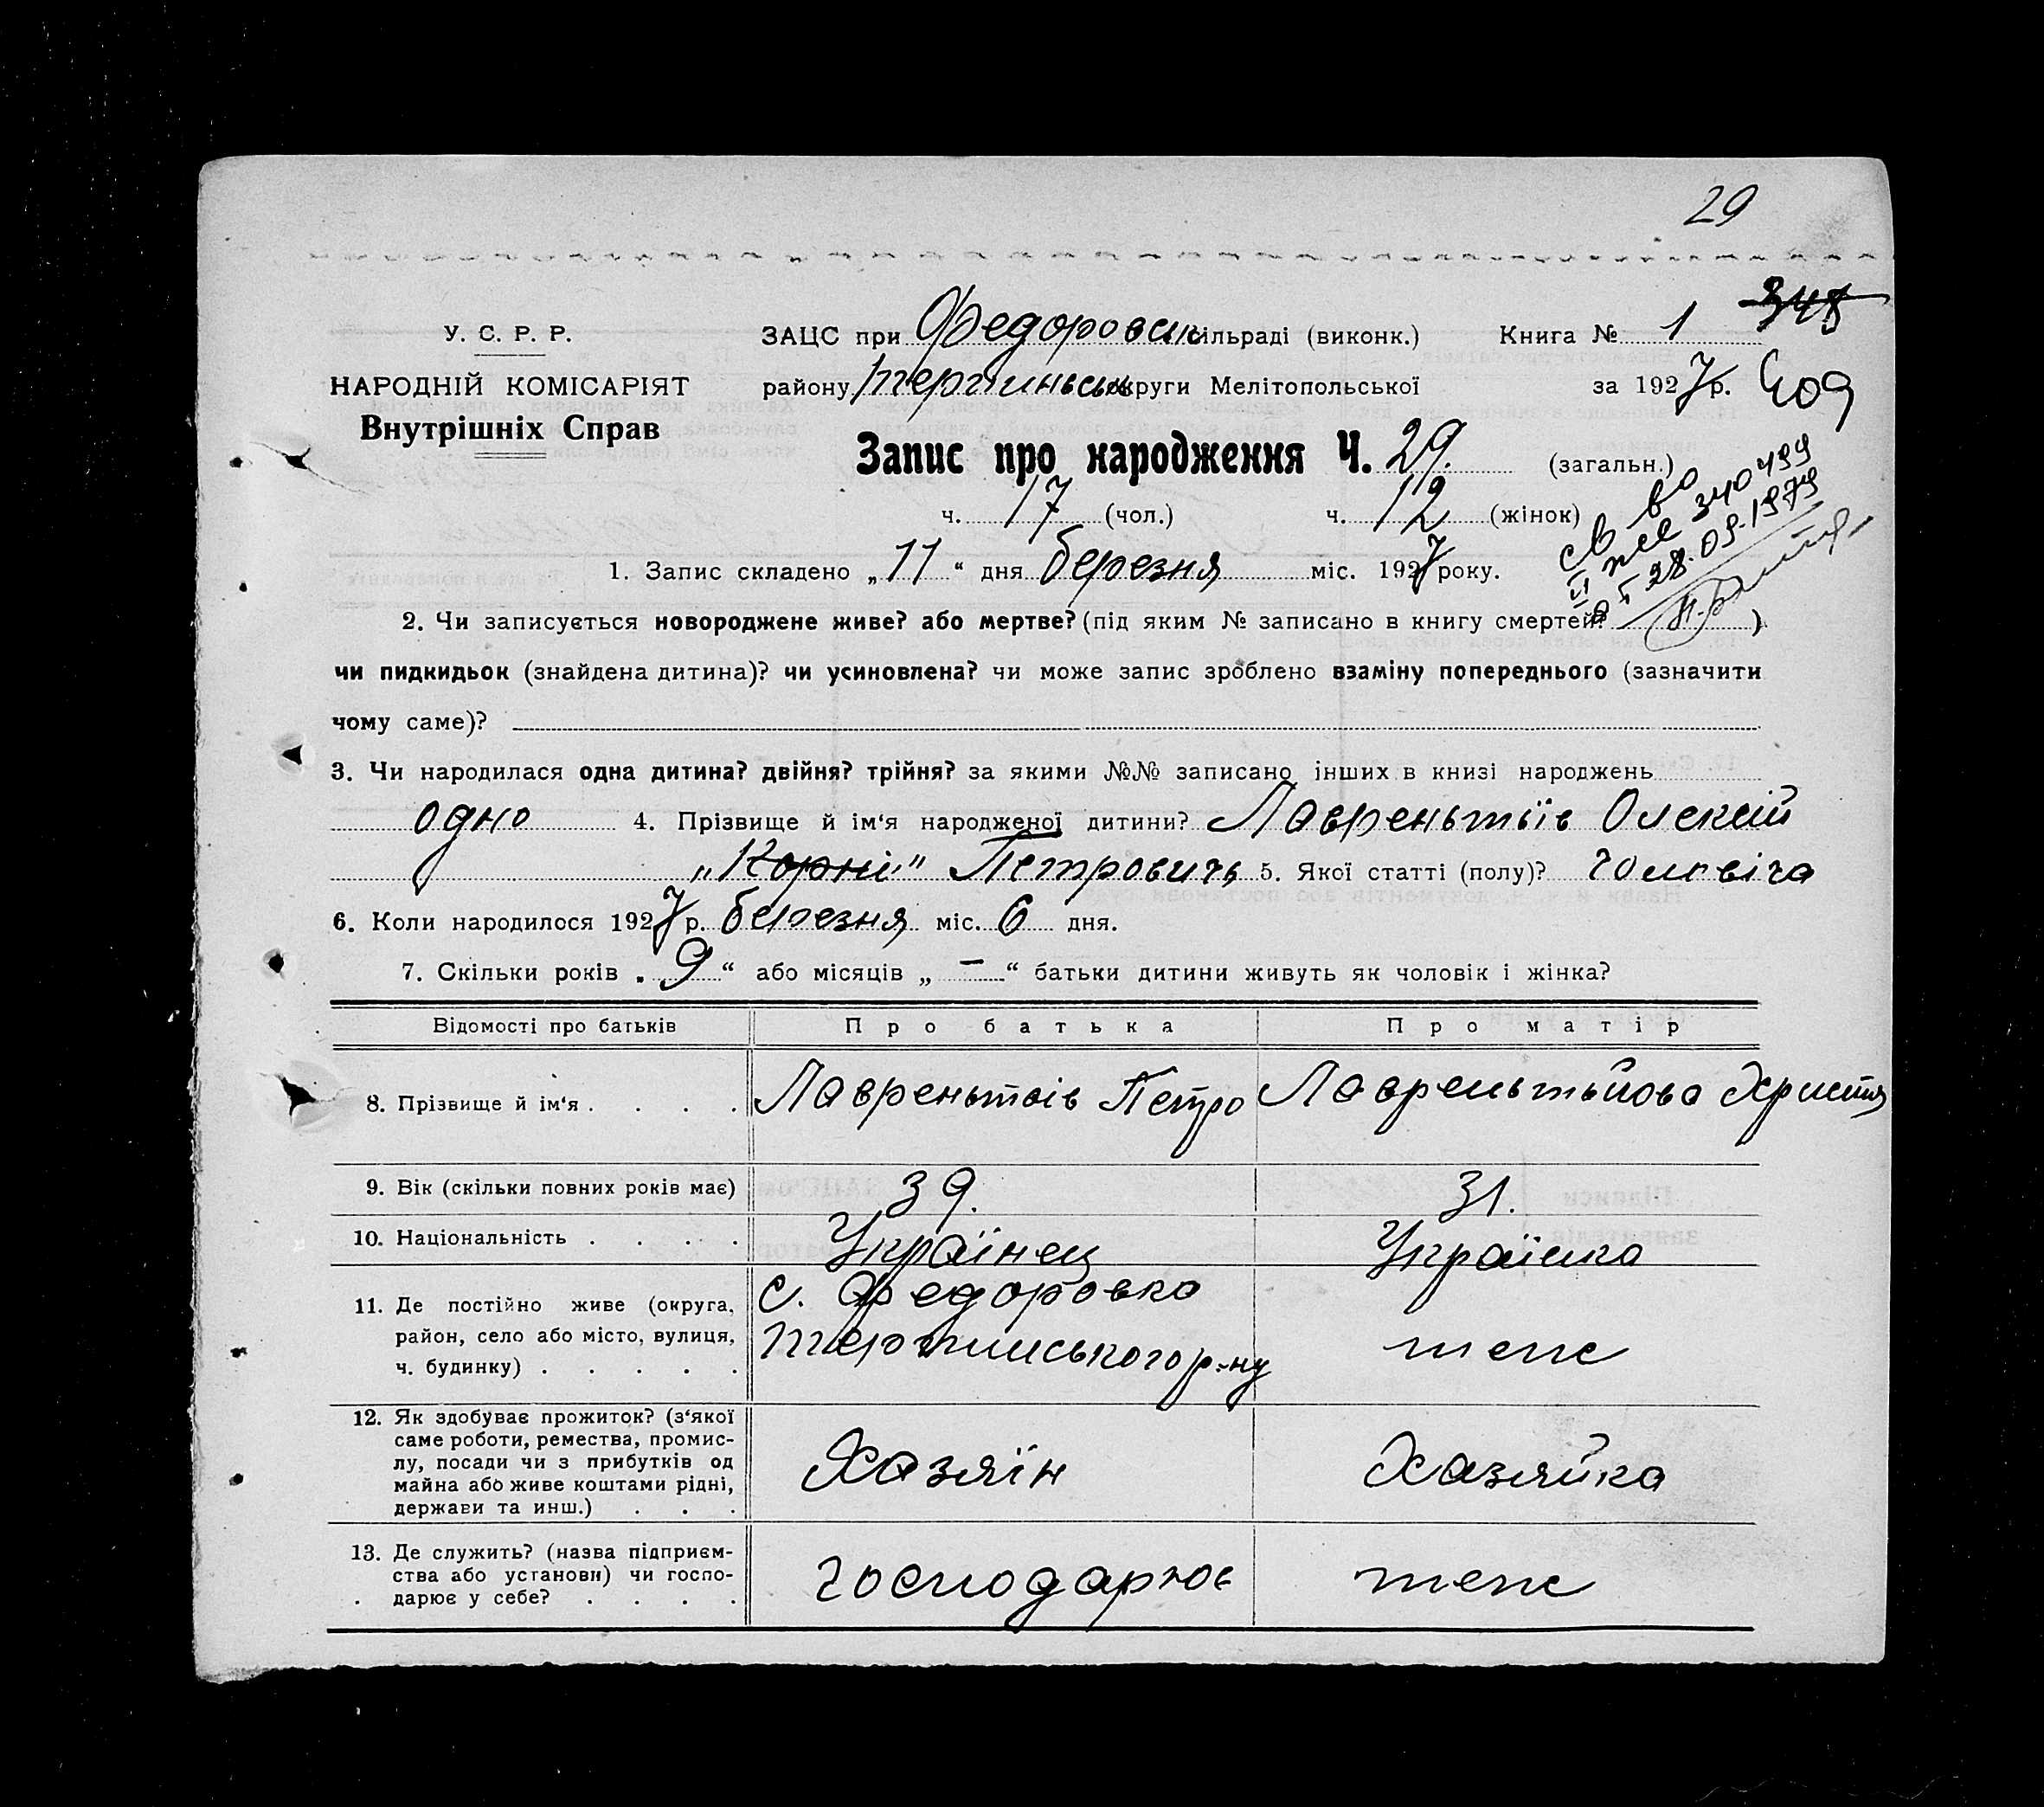 29
У. С. Р. Р.
НАРОДНІЙ КОМІСАРІЯТ
Внутрішніх Справ
ЗАЦС при Федоровськ сільраді (виконк.)
Книга № 1 348
району Терпиньськ округи Мелітопольської
за 1927 р. 409
Запис про народження Ч. 29. (загальн.)
ч. 17 (чол.) ч. 12 (жінок)
св во
340499
28.09.1979
1. Запис складено „11“ дня березня міс. 1927 року.
2. Чи записується новороджене живе? або мертве? (під яким № записано в книгу смертей? )
чи пидкидьок (знайдена дитина)? чи усиновлена? чи може запис зроблено взаміну попереднього (зазначити
чому саме)?
3. Чи народилася одна дитина? двійня? трійня? за якими №№ записано інших в книзі народжень
одно 4. Прізвище й ім'я народженої дитини? Лавреньтіїв Олексій
„Корній“ Петровичь 5. Якої статті (полу)? чоловіча
6. Коли народилося 1927 р. березня міс. 6 дня.
7. Скільки років „9“ або місяців „–“ батьки дитини живуть як чоловік і жінка?
Відомості про батьків Про батька Про матір
8. Прізвище й ім'я . . . . Лавреньтіїв Петро Лавреньтьйова Христя
9. Вік (скільки повних років має) 39. 31.
10. Національність . . . . Українец Українка
11. Де постійно живе (округа,
район, село або місто, вулиця,
ч. будинку) . . . . .
с. Федоровка
Терпинського р-ну
теж
12. Як здобуває прожиток? (з'якої
саме роботи, ремества, промис-
лу, посади чи з прибутків од
майна або живе коштами рідні,
держави та инш.) . . .
Хазяїн Хазяйка
13. Де служить? (назва підприєм-
ства або установи) чи госпо-
дарює у себе? . . . .
господарює теж